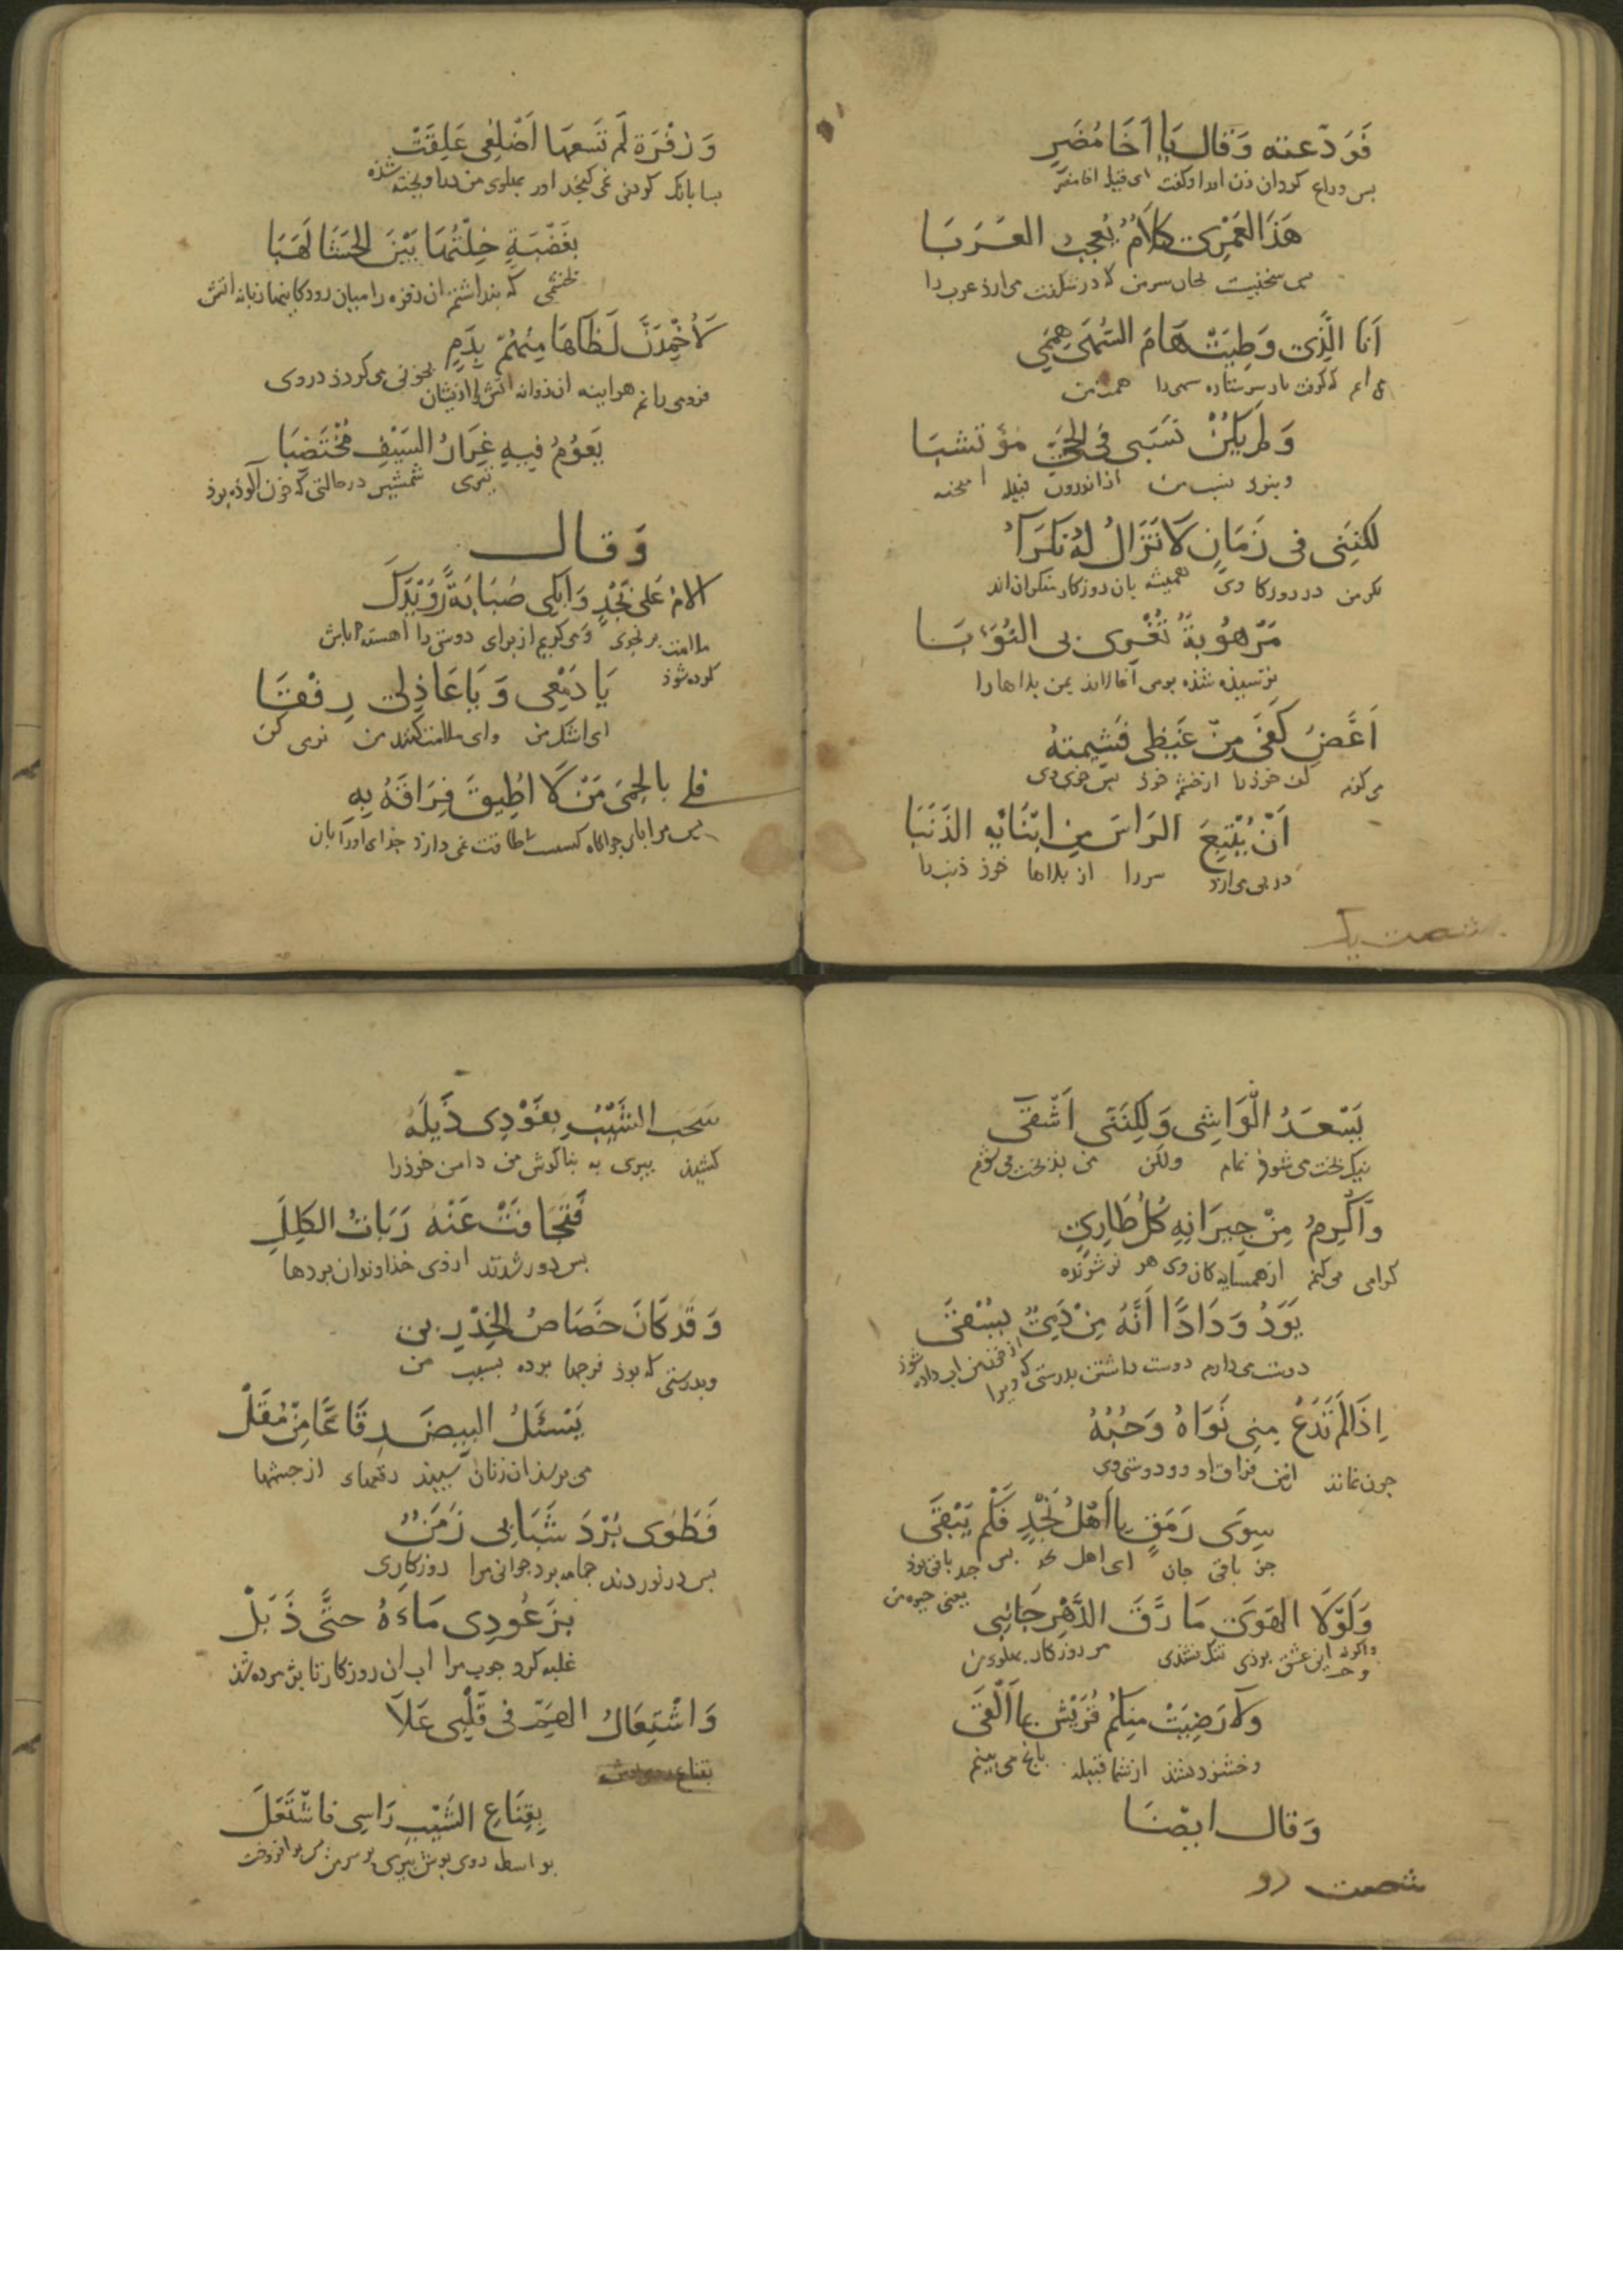 فَوَدّعته وَقال يَا اَخَا مُضَرٍ
بس وداع کردان زن اورا وکفت ای قبیله اخا مضر
هَذَا لَعَمْرِی كَلَامٌ يُعجِبُ العَرَبَا
سخنیست بجان سر من که در شکفت می ارذ عرب را
اَنَا الَّذِی وَطِيَتْ هَامَ السُهَى هِمَمِی
که کرفت بار سر ستاره سهى را همت من
وَلَم يَكُنْ نَسَبِى فِى الحَيِّ مؤتشبَا
ونبود نسب من از اندرون قبیله امیخته
لكنِنِى فى زَمَانٍ لَا تَزَالُ لَهُ نَكرَاءُ
مكر من در روزکا وی همیشه بان روزکار منکران اند
مَرْهُوبَةٌ تُغْرِى بِى النُوَبَا
ترسیده شذه بومی اغالاند بمن بلاها را
اَعَضُّ كَفِّى مِنْ غَيْظِى فَشِيمتهُ
می کزم کف خوذ را از خشم خوذ بس خوی وی
اَنْ يُتْبِعَ الرَاسَ مِن ابْنَائِهِ الذَنَبَا
در بی می ارذ سر را از بلاها خوذ ذنب را
شصت یک
وَزَفْرَةٍ لَم تَسَعهَا اَضْلُعِى عَلِقَتْ
بسا بانک کردنی نمی کنجد اور بهلوی من دراویخته شذه
بغَضْبَةٍ خِلْتُهَا بَيْنَ الحَشَا لَهَبَا
بخشمی که بنداشتم ان زفره را میان رودکانیها زبانه اتش
لَأُخْمِدَنَّ لَظَاهَا مِنْهُمُ بِدَمٍ
فرومی رانم هراینه ان زوانه اتش را ازیشان بخونی می کردذ در وی
يَعوُمُ فيهِ غِرَارُ السَيْفِ مُخْتَضِبَا
تیزی شمشیر در حالتی که خون آلوذه بوذ
وَقال
اُلامُ عَلى نَجْدٍ وَابْكِى صَبَابَةً رُوَيْدَكَ
ملامت کرده شوذ بر نجدی و می کریم از برای دوستی را اهسته باش
يَا دَمْعِى وَيَا عَاذِلِی رِفْقَا
ای اشک من وای ملامت کننده من نرمی کن
فَلِى بالحِمَى مَنْ لَا اُطِيقُ فِرَاقَهُ بِهِ
بس مرا با جراکاه کسیست طاقت نمی دارذ جذای اورا بان
يَسْعَدُ الْوَاشِى وَلَكِنَنِى اَشْقَى
نیک بخت می شوذ نمام ولکن من بذبخت می شوم
وَاُكْرِمُ مِنْ جِيرَانِهِ كُلَّ طَارِیٍ
کرامی می کنم از همسایه کان وی هر نو شونده
يَوَدُّ وَدَادًا اَنَّهُ مِنْ دَمِی يُسْقَى
دوست می دارم دوست داشتن بدرستی که ویرا از خون من اب داده شوذ
اِذَا لَمْ تَدَعْ مِنِى نَوَاهُ وَحُبُّهُ
جون نماند از من فراق او و دوستی وی
سِوَى رَمَقٍ يا اَهْلَ نَجْدٍ فَكَم يَبْقَى
جز باقی جان ای اهل نجد بس جند باقی بود یعنی جیوه من
وَلَوْلَا الهَوَى مَا رَقَّ الدَّهْرُ جَانِبِى
واکر نه این عشق بوذی تنک نشدی مر روزکار بهلوی من
وَلَا رَضِيَتْ مِنكُمْ قُرَيْشٌ بما اَلْقَى
وخشنود نشذ از شما قبیله بانج می بینم
وَقال ايضًا
شصت دو
سَحَبَ الشَيْبُ بفَوْدِى ذَيلَهُ
کشیذ بیری به بناکوش من دامن خوذ را
فَتَجَافَتْ عَنْهُ رَبَّاتُ الكِلَلِ
بس دور شدند از وی خذاوندان بردها
وَقَد كَانَ خَصَاصُ الخِذْرِ بى
وبدرستی که بوذ فرجها برده بسبب من
يَسْئَلُ البِيضَ رِقَاعًا مِنْ مُقَلْ
می برسذ ان زنان سبید رقعهاء از جشمها
فَطَوَى بُرْدَ شَبَابِى زَمَنٌ
بس در نوردند جامه برد جوانی مرا روزکاری
بَزَّ عُودِى مَاءَهُ حتَّى ذَبَلْ
غلبه کرد جوب مرا اب ان روزکار تا بژمرده شذ
وَاشْتِعَالُ الهَمِّ فى قَلْبِى عَلَا
بقناع
بِقِنَاعِ الشَيْبِ رَاسِى فاشْتَعَلَ
بواسطه روی بوش بیری بر سر من بس بر افروخت